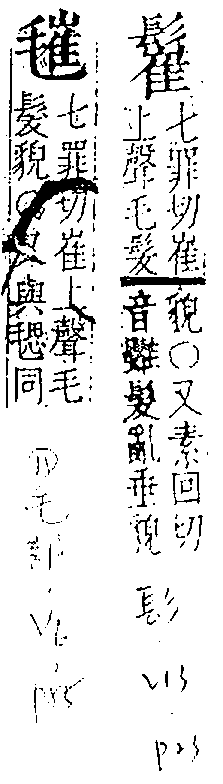 七罪切崔
上聲毛髮
貌○又素回切
音雖髮亂垂貌
髟
V13
p23
七罪切崔上聲毛
髮貌○
與毸同
毛部
V6